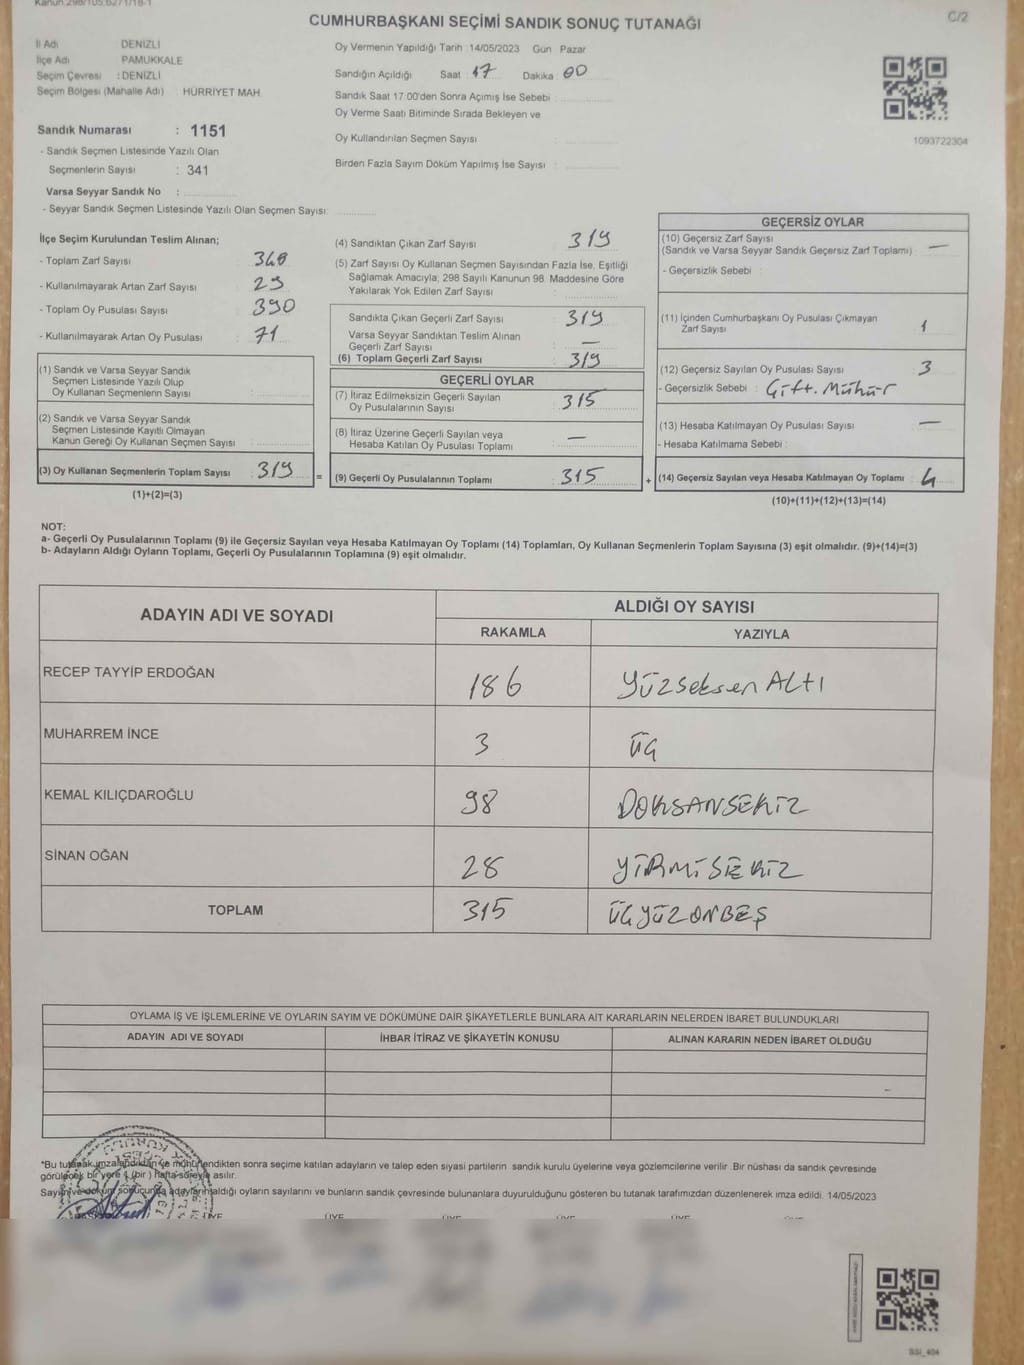 CUMHURBAŞKANI SEÇİMİ SANDIK SONUÇ TUTANAĞI
C/2
İl Adı DENİZLİ
İlçe Adı PAMUKKALE
Seçim Çevresi : DENİZLİ
Seçim Bölgesi (Mahalle Adı) HÜRRİYET MAH.
Oy Vermenin Yapıldığı Tarih : 14/05/2023 Gün Pazar
Sandığın Açıldığı Saat 17 Dakika 00
Sandık Saat 17:00'den Sonra Açımış İse Sebebi :
Oy Verme Saati Bitiminde Sırada Bekleyen ve
Oy Kullandırılan Seçmen Sayısı :
Birden Fazla Sayım Döküm Yapılmış İse Sayısı :
1093722304
Sandık Numarası : 1151
- Sandık Seçmen Listesinde Yazılı Olan
Seçmenlerin Sayısı : 341
Varsa Seyyar Sandık No :
- Seyyar Sandık Seçmen Listesinde Yazılı Olan Seçmen Sayısı:
İlçe Seçim Kurulundan Teslim Alınan;
- Toplam Zarf Sayısı
- Kullanılmayarak Artan Zarf Sayısı 29
- Toplam Oy Pusulası Sayısı 390
- Kullanılmayarak Artan Oy Pusulası 71
(1) Sandık ve Varsa Seyyar Sandık
Seçmen Listesinde Yazılı Olup
Oy Kullanan Seçmenlerin Sayısı
(2) Sandık ve Varsa Seyyar Sandık
Seçmen Listesinde Kayıtlı Olmayan
Kanun Gereği Oy Kullanan Seçmen Sayısı
(3) Oy Kullanan Seçmenlerin Toplam Sayısı : 319 =
(1)+(2)=(3)
(4) Sandıktan Çıkan Zarf Sayısı 319
(5) Zarf Sayısı Oy Kullanan Seçmen Sayısından Fazla İse, Eşitliği
Sağlamak Amacıyla, 298 Sayılı Kanunun 98. Maddesine Göre
Yakılarak Yok Edilen Zarf Sayısı
Sandıkta Çıkan Geçerli Zarf Sayısı 319
Varsa Seyyar Sandıktan Teslim Alınan
Geçerli Zarf Sayısı : —
(6) Toplam Geçerli Zarf Sayısı : 319
GEÇERLİ OYLAR
(7) İtiraz Edilmeksizin Geçerli Sayılan
Oy Pusulalarının Sayısı : 315
(8) İtiraz Üzerine Geçerli Sayılan veya
Hesaba Katılan Oy Pusulası Toplamı : —
(9) Geçerli Oy Pusulalarının Toplamı : 315 +
GEÇERSİZ OYLAR
(10) Geçersiz Zarf Sayısı
(Sandık ve Varsa Seyyar Sandık Geçersiz Zarf Toplamı) : —
- Geçersizlik Sebebi :
(11) İçinden Cumhurbaşkanı Oy Pusulası Çıkmayan
Zarf Sayısı 1
(12) Geçersiz Sayılan Oy Pusulası Sayısı : 3
- Geçersizlik Sebebi : Çift. Mühür
(13) Hesaba Katılmayan Oy Pusulası Sayısı : —
- Hesaba Katılmama Sebebi :
(14) Geçersiz Sayılan veya Hesaba Katılmayan Oy Toplamı : 4
(10)+(11)+(12)+(13)=(14)
NOT:
a- Geçerli Oy Pusulalarının Toplamı (9) ile Geçersiz Sayılan veya Hesaba Katılmayan Oy Toplamı (14) Toplamları, Oy Kullanan Seçmenlerin Toplam Sayısına (3) eşit olmalıdır. (9)+(14)=(3)
b- Adayların Aldığı Oyların Toplamı, Geçerli Oy Pusulalarının Toplamına (9) eşit olmalıdır.
ADAYIN ADI VE SOYADI ALDIĞI OY SAYISI
RAKAMLA YAZIYLA
RECEP TAYYİP ERDOĞAN 186 YÜZseksen ALTI
MUHARREM İNCE 3 ÜÇ
KEMAL KILIÇDAROĞLU 98 DOKSANSEKİZ
SİNAN OĞAN 28 YİRMİSEKİZ
TOPLAM 315 ÜÇYÜZONBEŞ
OYLAMA İŞ VE İŞLEMLERİNE VE OYLARIN SAYIM VE DÖKÜMÜNE DAİR ŞİKAYETLERLE BUNLARA AİT KARARLARIN NELERDEN İBARET BULUNDUKLARI
ADAYIN ADI VE SOYADI İHBAR İTİRAZ VE ŞİKAYETİN KONUSU ALINAN KARARIN NEDEN İBARET OLDUĞU
*Bu tutanak imzalandıktan ve mühürlendikten sonra seçime katılan adayların ve talep eden siyasi partilerin sandık kurulu üyelerine veya gözlemcilerine verilir. Bir nüshası da sandık çevresinde
görülecek bir yere 1 (bir) hafta süreyle asılır.
Sayım ve döküm sonucunda adayların aldığı oyların sayılarını ve bunların sandık çevresinde bulunanlara duyurulduğunu gösteren bu tutanak tarafımızdan düzenlenerek imza edildi. 14/05/2023
ÜYE ÜYE ÜYE ÜYE ÜYE ÜYE